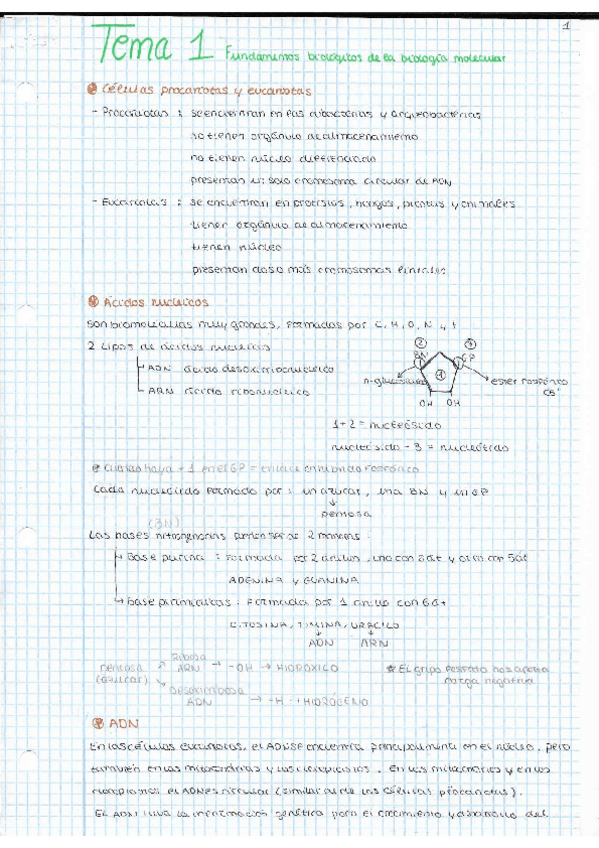 1
Tema 1 Fundamentos biológicos de la biología molecular
Células procariotas y eucariotas
- Procariotas : se encuentran en las eubacterias y arqueobacterias
no tienen orgánulo de almacenamiento
no tienen núcleo diferenciado
presentan un solo cromosoma circular de ADN
- Eucariotas : se encuentran en protistas, hongos, plantas y animales
tienen orgánulo de almacenamiento
tienen núcleo
presentan dos o más cromosomas lineales
Ácidos nucleicos
Son biomoléculas muy grandes, formadas por C, H, O, N y P
2 tipos de ácidos nucleicos
ADN ácido desoxirribonucleico
ARN ácido ribonucleico
② ③
BN GP
①
n-glucosídico éster fosfórico
C5'
OH OH
1+2 = nucleósido
nucleósido - 3 = nucleótido
Cuando haya + 1 en el GP = enlace anhídrido fosfórico
Cada nucleótido formado por : un azúcar, una BN y un GP
pentosa
(BN)
Las bases nitrogenadas pueden ser de 2 maneras :
Base purina : Formada por 2 anillos, uno con 6át y otro con 5át
ADENINA y GUANINA
Base pirimidinas : Formada por 1 anillo con 6át
CITOSINA, TIMINA, URACILO
ADN ARN
pentosa (azúcar)
Ribosa ARN → -OH → HIDRÓXILO
Desoxirribosa ADN → -H → HIDRÓGENO
* El grupo fosfato nos aporta carga negativa
ADN
En las células eucariotas, el ADN se encuentra principalmente en el núcleo, pero
también en las mitocondrias y los cloroplastos. En las mitocondrias y en los
cloroplastos el ADN es circular (similar al de las células procariotas).
El ADN lleva la información genética para el crecimiento y desarrollo del